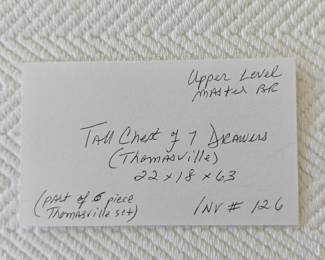 Upper Level
Master BR
Tall Chest of 7 Drawers
(Thomasville)
22 x 18 x 63
(part of 6 piece
Thomasville set)
Inv # 126